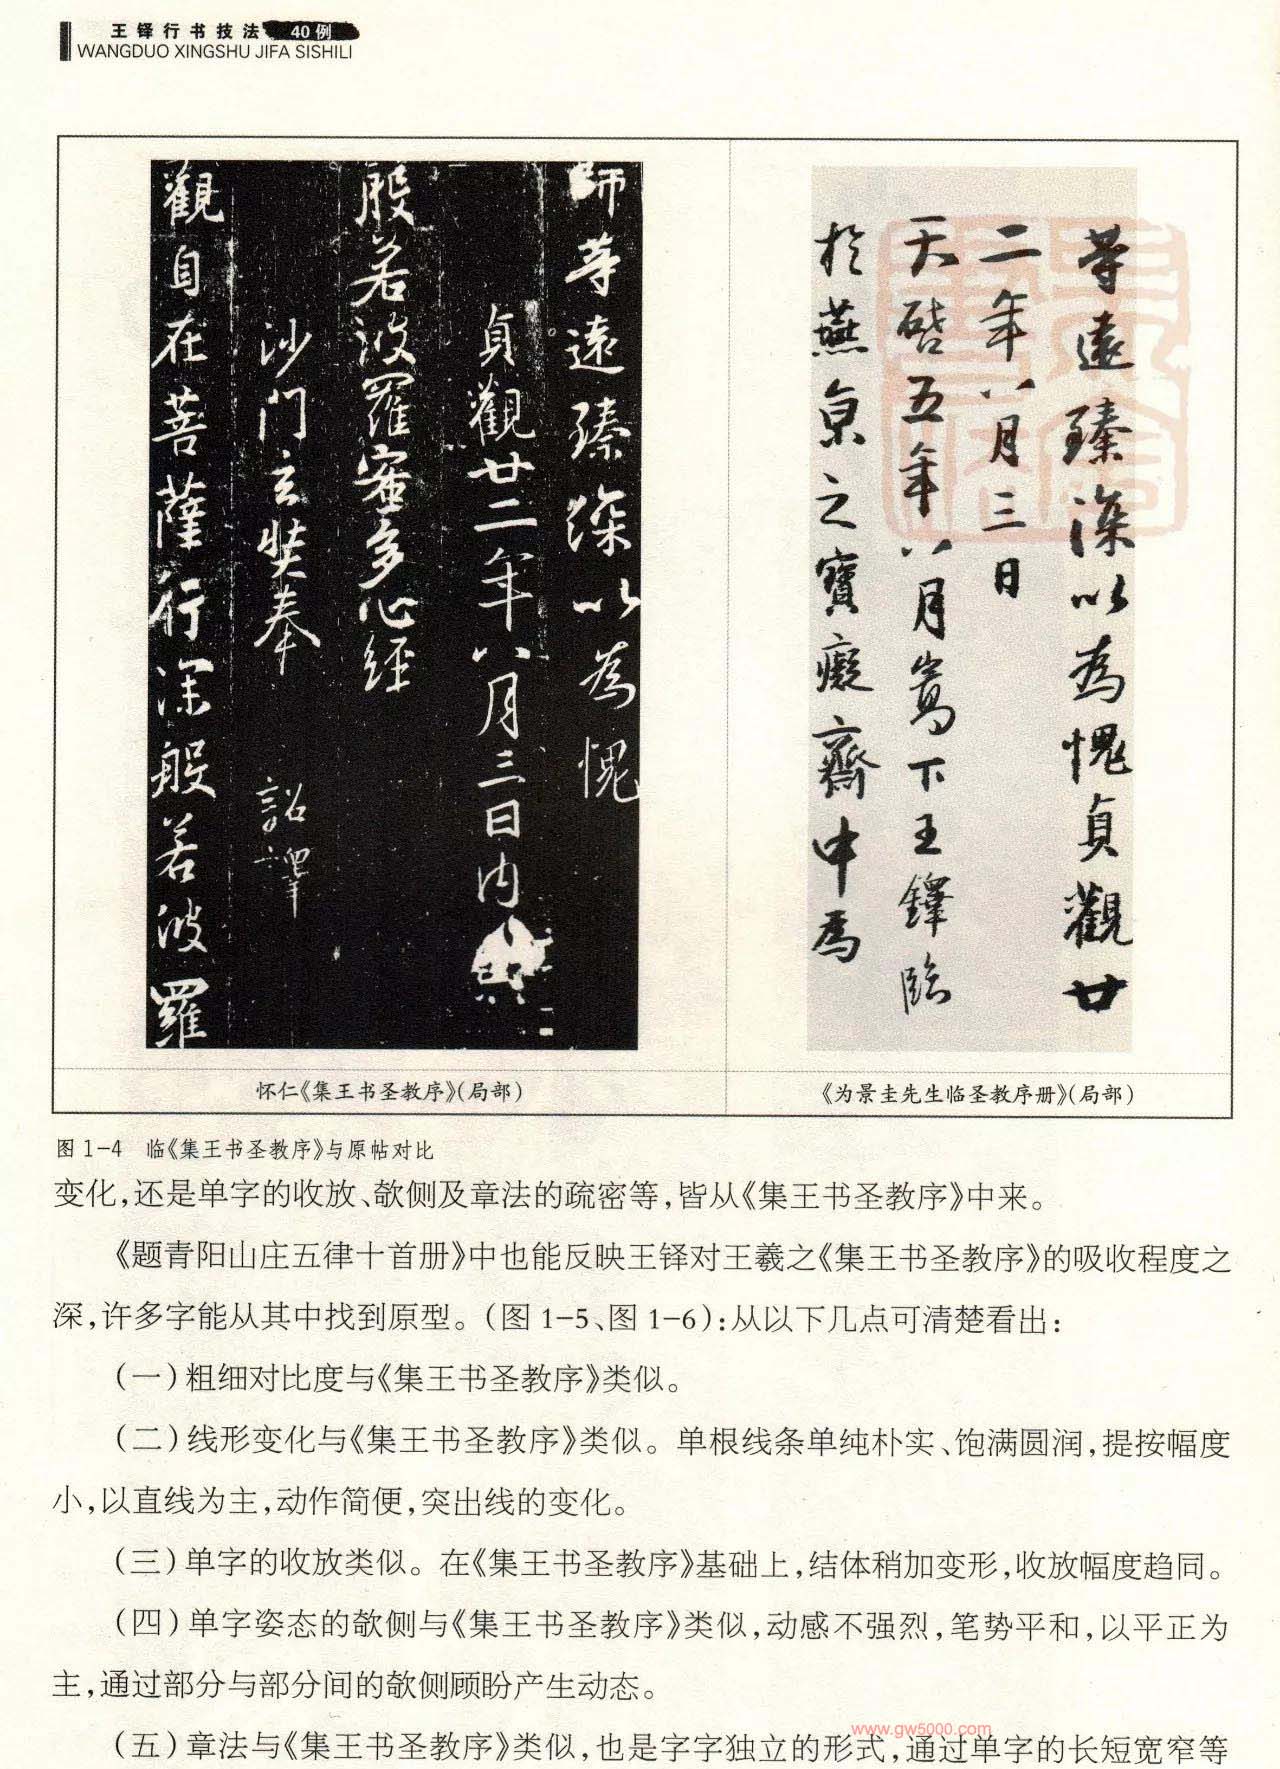 王铎行书技法 40例
WANGDUO XINGSHU JIFA SISHILI
師等遠臻深以為愧
貞觀廿二年八月三日内
般若波羅蜜多心經
沙門玄奘奉 詔譯
觀自在菩薩行深般若波羅
等遠臻深以為愧貞觀廿
二年八月三日
天啓五年八月嵩下王鐸臨
於燕京之寶癡齋中為
怀仁《集王书圣教序》(局部)
《为景圭先生临圣教序册》(局部)
图 1-4 临《集王书圣教序》与原帖对比
变化,还是单字的收放、欹侧及章法的疏密等,皆从《集王书圣教序》中来。
《题青阳山庄五律十首册》中也能反映王铎对王羲之《集王书圣教序》的吸收程度之
深,许多字能从其中找到原型。(图 1-5、图 1-6):从以下几点可清楚看出:
(一)粗细对比度与《集王书圣教序》类似。
(二)线形变化与《集王书圣教序》类似。单根线条单纯朴实、饱满圆润,提按幅度
小,以直线为主,动作简便,突出线的变化。
(三)单字的收放类似。在《集王书圣教序》基础上,结体稍加变形,收放幅度趋同。
(四)单字姿态的欹侧与《集王书圣教序》类似,动感不强烈,笔势平和,以平正为
主,通过部分与部分间的欹侧顾盼产生动态。
www.gw5000.com
(五)章法与《集王书圣教序》类似,也是字字独立的形式,通过单字的长短宽窄等